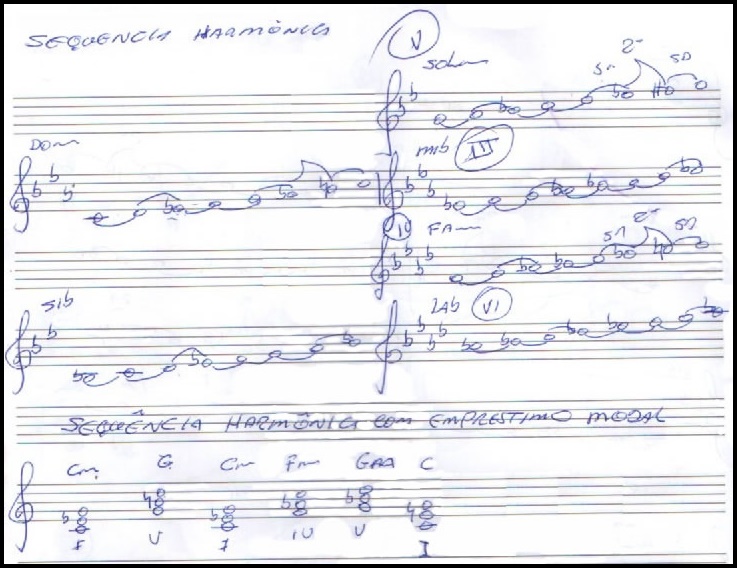 SEQUENCIA HARMÔNICA
V
SOLm
5ª 2ª 5D
DOm
MIb III
IV FAm
5D 2ª 5D
SIb
LAb VI
SEQUÊNCIA HARMÔNICA COM EMPRESTIMO MODAL
Cm G Cm Fm C
I V I IV V I